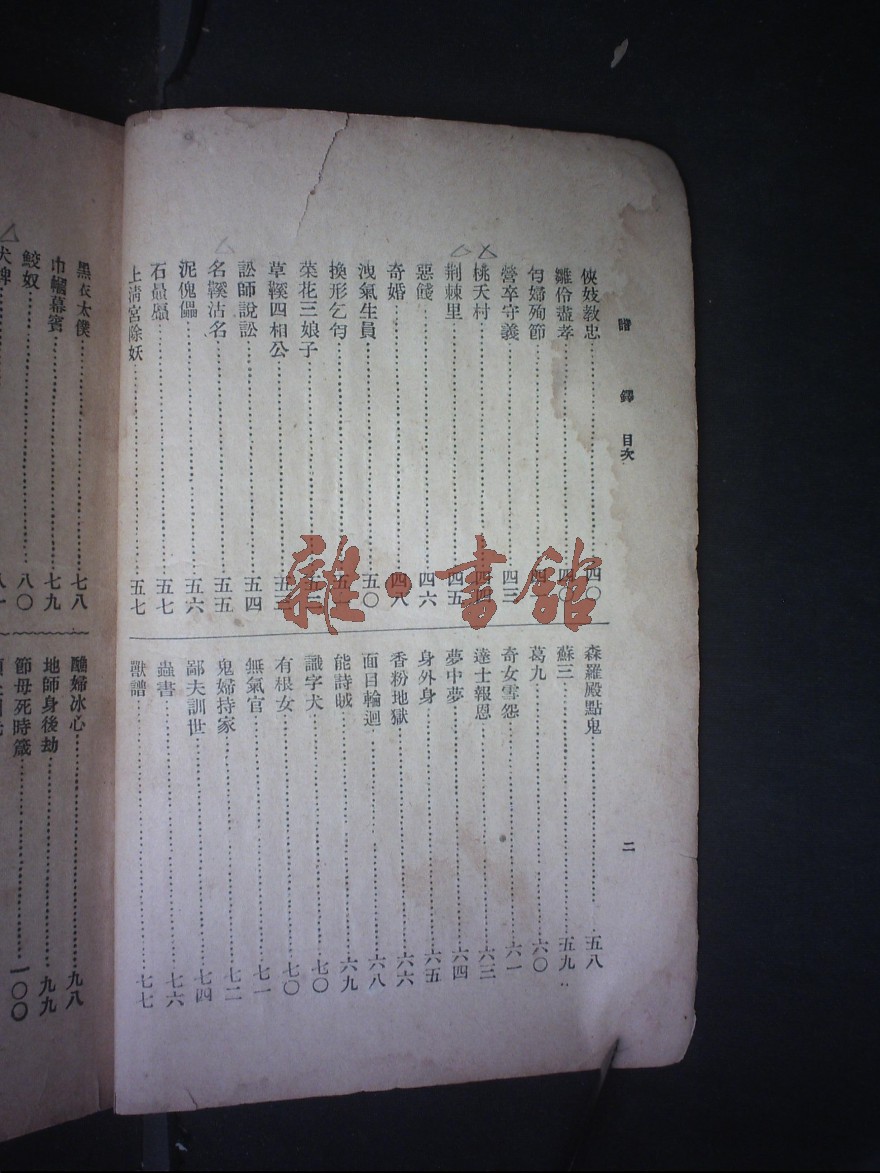 諧鐸 目次 二
俠妓教忠 四〇
雛伶盡孝 四〇
匄婦殉節
營卒守義 四三
桃夭村 四四
荆棘里 四五
惡餞 四六
奇婚 四八
洩氣生員 五〇
換形乞匄
菜花三娘子
草鞵四相公
訟師說訟 五四
名鞵沽名 五五
泥傀儡 五六
石贔屭 五七
上淸宮除妖 五七
森羅殿點鬼 五八
蘇三 五九
葛九 六〇
奇女雪怨 六一
達士報恩 六三
夢中夢 六四
身外身 六五
香粉地獄 六六
面目輪迴 六八
能詩賊 六九
識字犬 七〇
有根女 七〇
無氣官 七一
鬼婦持家 七二
鄙夫訓世 七四
蟲書 七六
獸譜 七七
黑衣太僕 七八
巾幗幕賓 七九
鮫奴 八〇
犬婢 八一
醜婦冰心 九八
地師身後劫 九九
節母死時箴 一〇〇
雜·書館